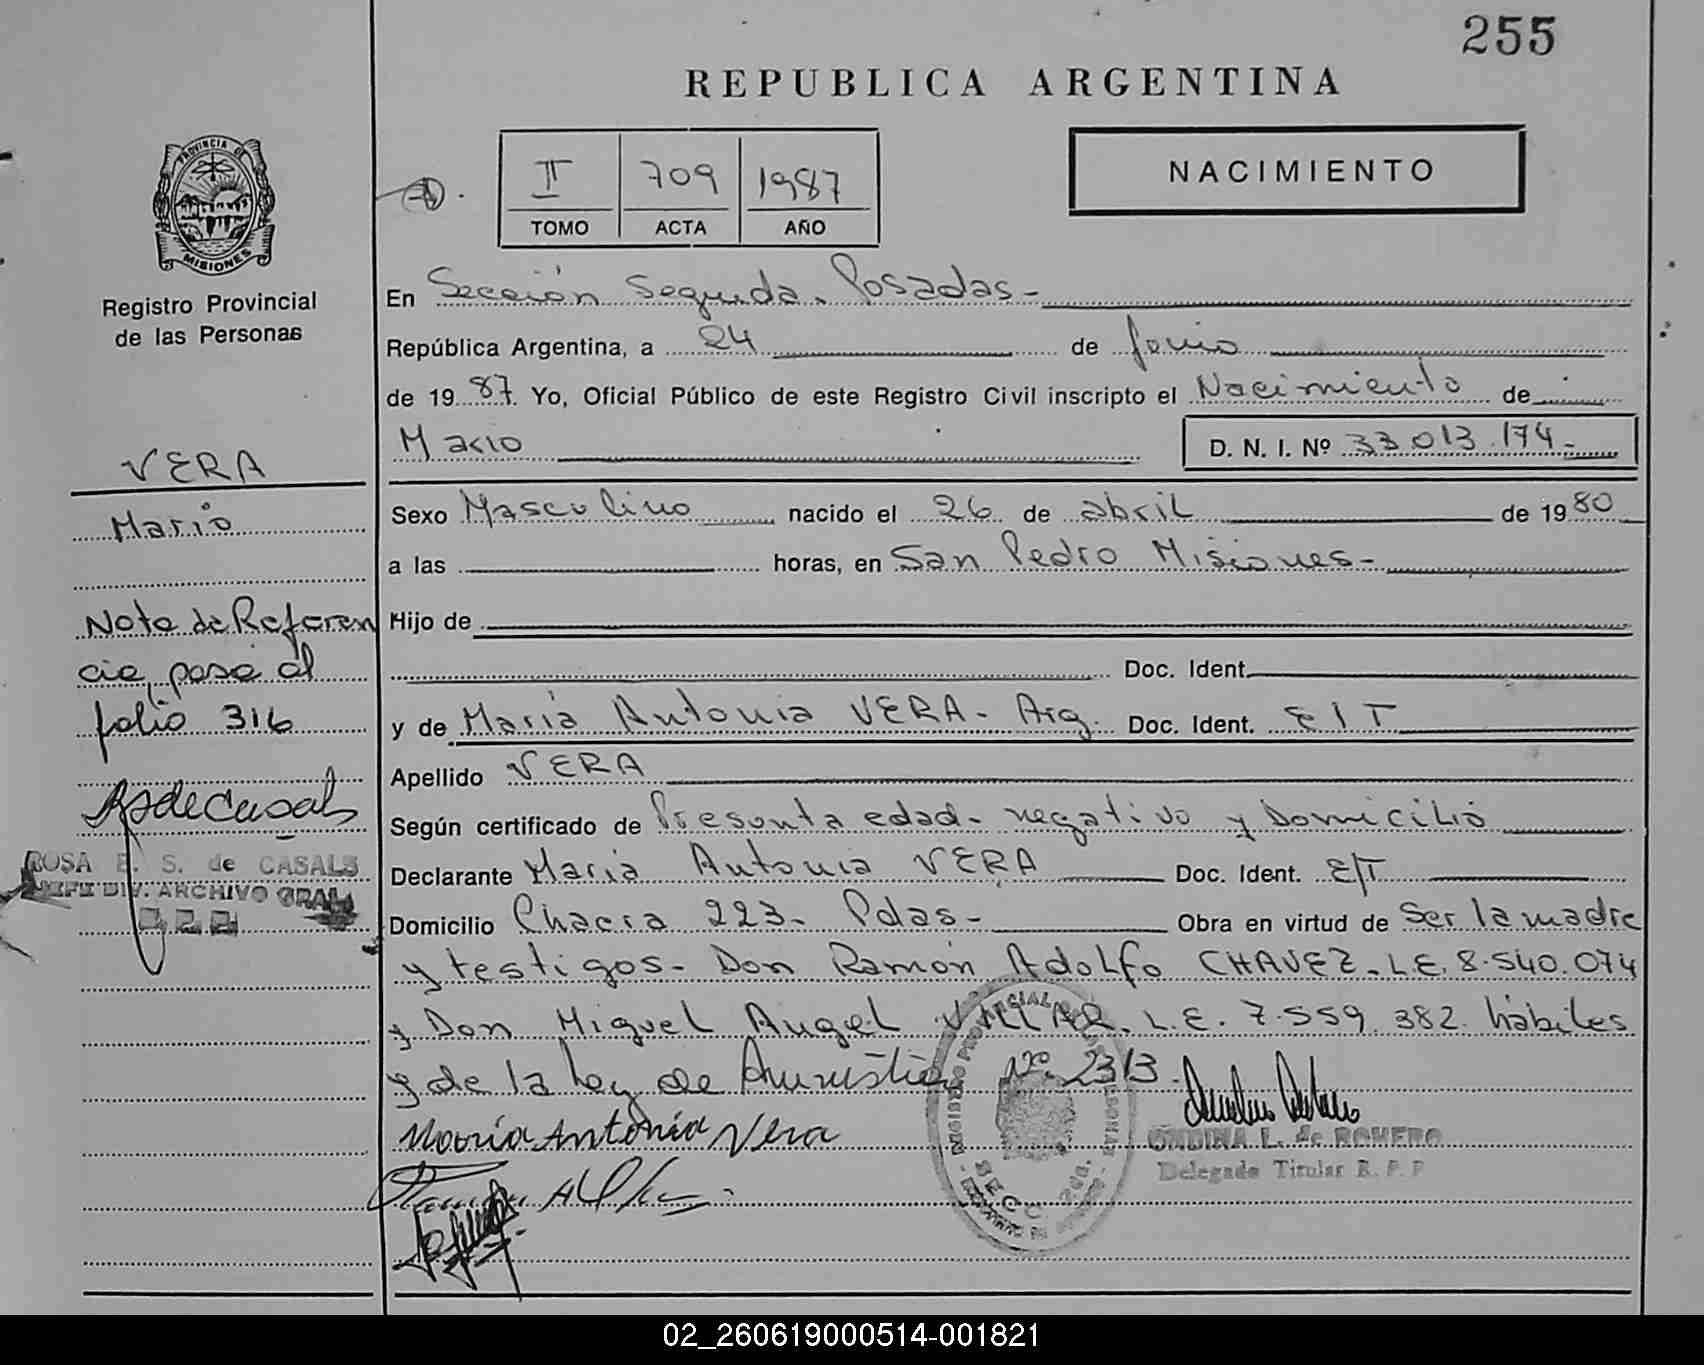 255
REPUBLICA ARGENTINA
PROVINCIA DE
MISIONES
Registro Provincial
de las Personas
II 709 1987
TOMO ACTA AÑO
NACIMIENTO
En Sección Segunda. Posadas-
República Argentina, a 24 de Junio
de 1987. Yo, Oficial Público de este Registro Civil inscripto el Nacimiento de
Mario
D. N. I. Nº 33.013.174-
VERA
Mario
Nota de Referen
cia, pasa al
folio 316
Sexo Masculino nacido el 26 de abril de 1980
a las horas, en San Pedro Misiones-
Hijo de
Doc. Ident.
y de María Antonia VERA- Arg. Doc. Ident. E/T
Apellido VERA
Según certificado de Presunta edad- negativo y Domicilio
Declarante María Antonia VERA Doc. Ident. E/T
Domicilio Chacra 223- Pdas- Obra en virtud de Ser la madre
y testigos- Don Ramón Adolfo CHAVEZ. L.E. 8.540.074
y Don Miguel Angel VILLAR. L.E. 7.559.382. hábiles
y de la Ley de Amnistía Nº 2313.
María Antonia Vera
RdeCasals
ROSA E. S. de CASALS
JEFE DIV. ARCHIVO GRAL.
ONDINA L. de ROMERO
Delegada Titular R. P. P
SECC. 2da.
02_260619000514-001821